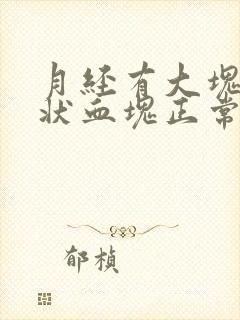 月经有大塊
状血塊正常
郁楨